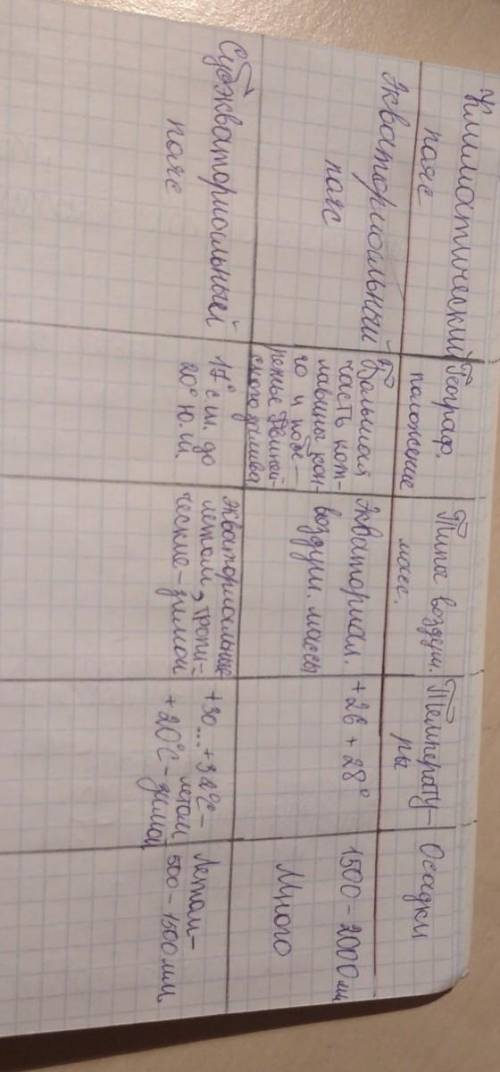 Климатический
пояс
Географ.
положение
Типы воздуш.
масс.
Температу-
ры
Осадки
Экваториальный
пояс
Большая
часть кот-
лавины кон-
го и побе-
режье Гвиней-
ского залива
Экваториал.
воздуш. массы
+26 +28°
1500-2000 мм
Много
Субэкваториальный
пояс
17° с.ш. до
20° ю.ш.
Экваториальные
летом, тропи-
ческие-зимой
+30...+32°С-
летом
+20°С-зимой
Летом-
500-1500 мм.